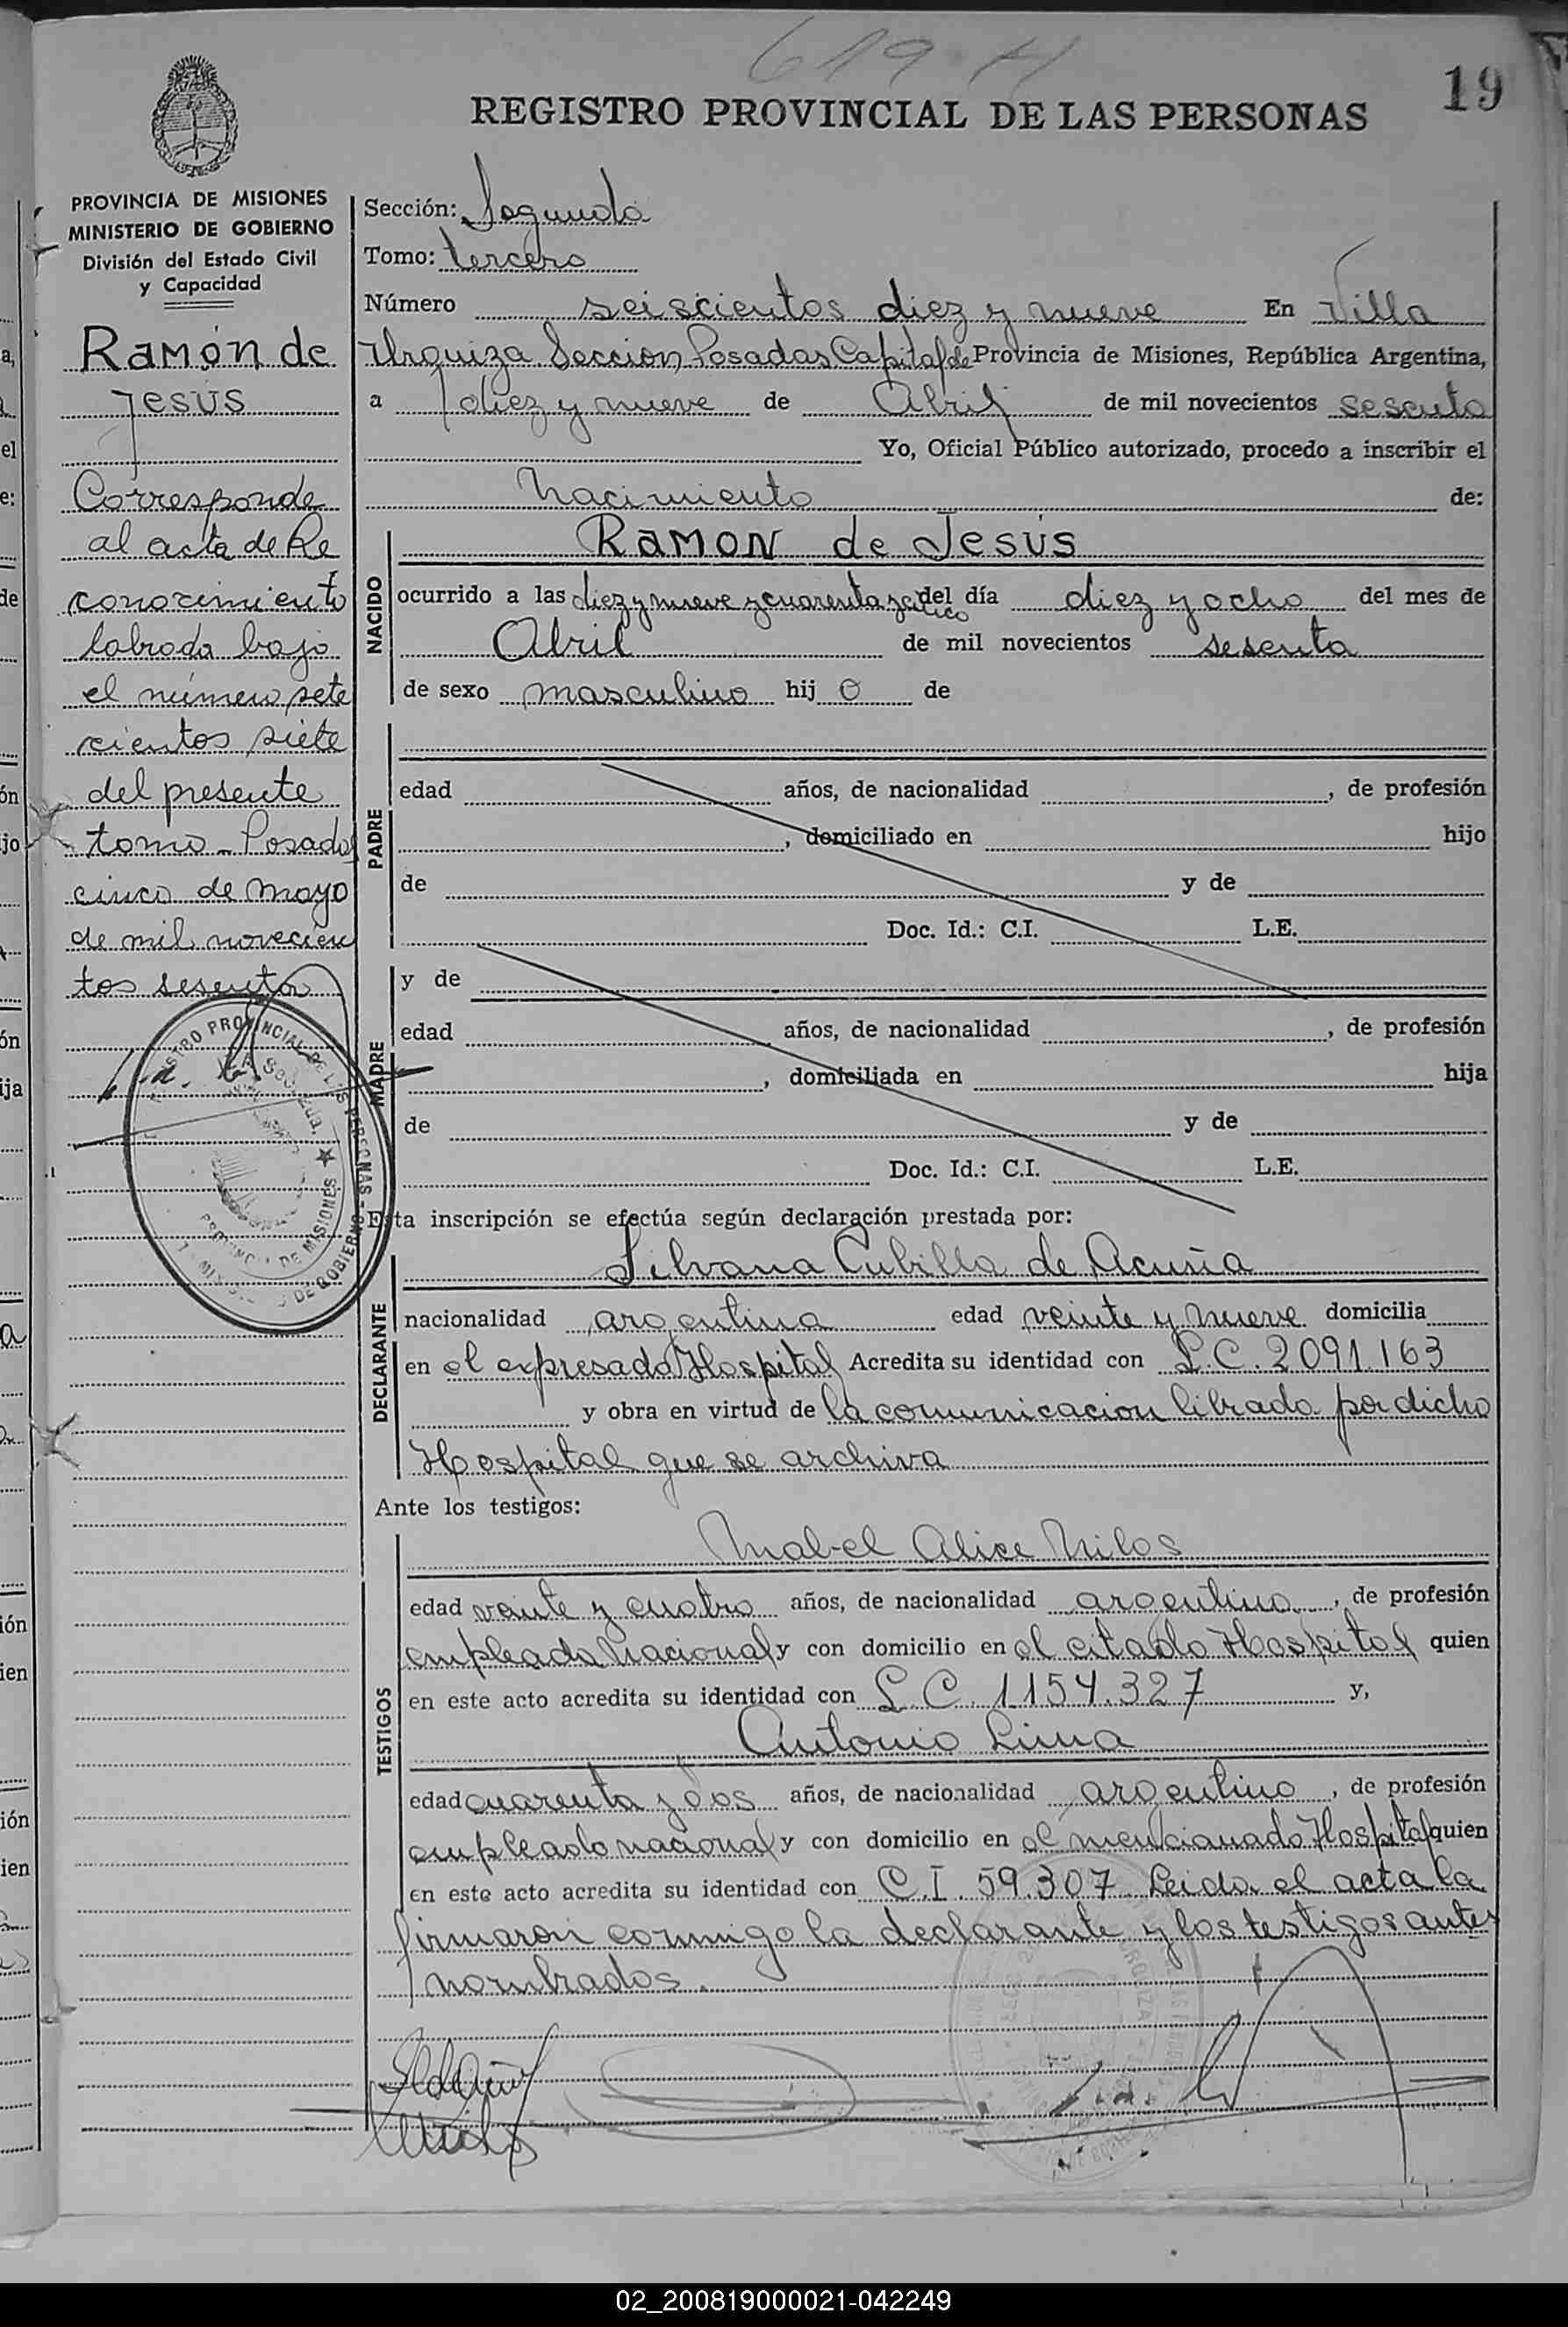 619 H
19
REGISTRO PROVINCIAL DE LAS PERSONAS
PROVINCIA DE MISIONES
MINISTERIO DE GOBIERNO
División del Estado Civil
y Capacidad
Ramón de
Jesús
Corresponde
al acta de Re
conocimiento
labrada bajo
el número sete
cientos siete
del presente
tomo - Posadas
cinco de mayo
de mil novecien
tos sesenta
Sección: Segunda
Tomo: tercero
Número seiscientos diez y nueve En Villa
Urquiza Sección Posadas Capital de Provincia de Misiones, República Argentina,
a diez y nueve de Abril de mil novecientos sesenta
Yo, Oficial Público autorizado, procedo a inscribir el
Nacimiento de:
NACIDO
RAMON de Jesús
ocurrido a las diez y nueve y cuarenta y cinco del día diez y ocho del mes de
Abril de mil novecientos sesenta
de sexo masculino hij o de
PADRE
edad años, de nacionalidad , de profesión
, domiciliado en hijo
de y de
Doc. Id.: C.I. L.E.
MADRE
y de
edad años, de nacionalidad , de profesión
, domiciliada en hija
de y de
Doc. Id.: C.I. L.E.
Esta inscripción se efectúa según declaración prestada por:
DECLARANTE
Silvana Cubilla de Acuña
nacionalidad argentina edad veinte y nueve domicilia
en el expresado Hospital Acredita su identidad con L.C. 2091.163
y obra en virtud de la comunicacion librada por dicho
Hospital que se archiva
Ante los testigos:
TESTIGOS
Mabel Alice Milos
edad veinte y cuatro años, de nacionalidad argentina, de profesión
empleada Nacional y con domicilio en el citado Hospital quien
en este acto acredita su identidad con L C. 1154.327 y,
Antonio Lima
edad cuarenta y dos años, de nacionalidad argentino, de profesión
empleado nacional y con domicilio en el mencionado Hospital quien
en este acto acredita su identidad con C.I. 59.307 Leida el acta la
firmaron conmigo la declarante y los testigos antes
nombrados.
02_200819000021-042249